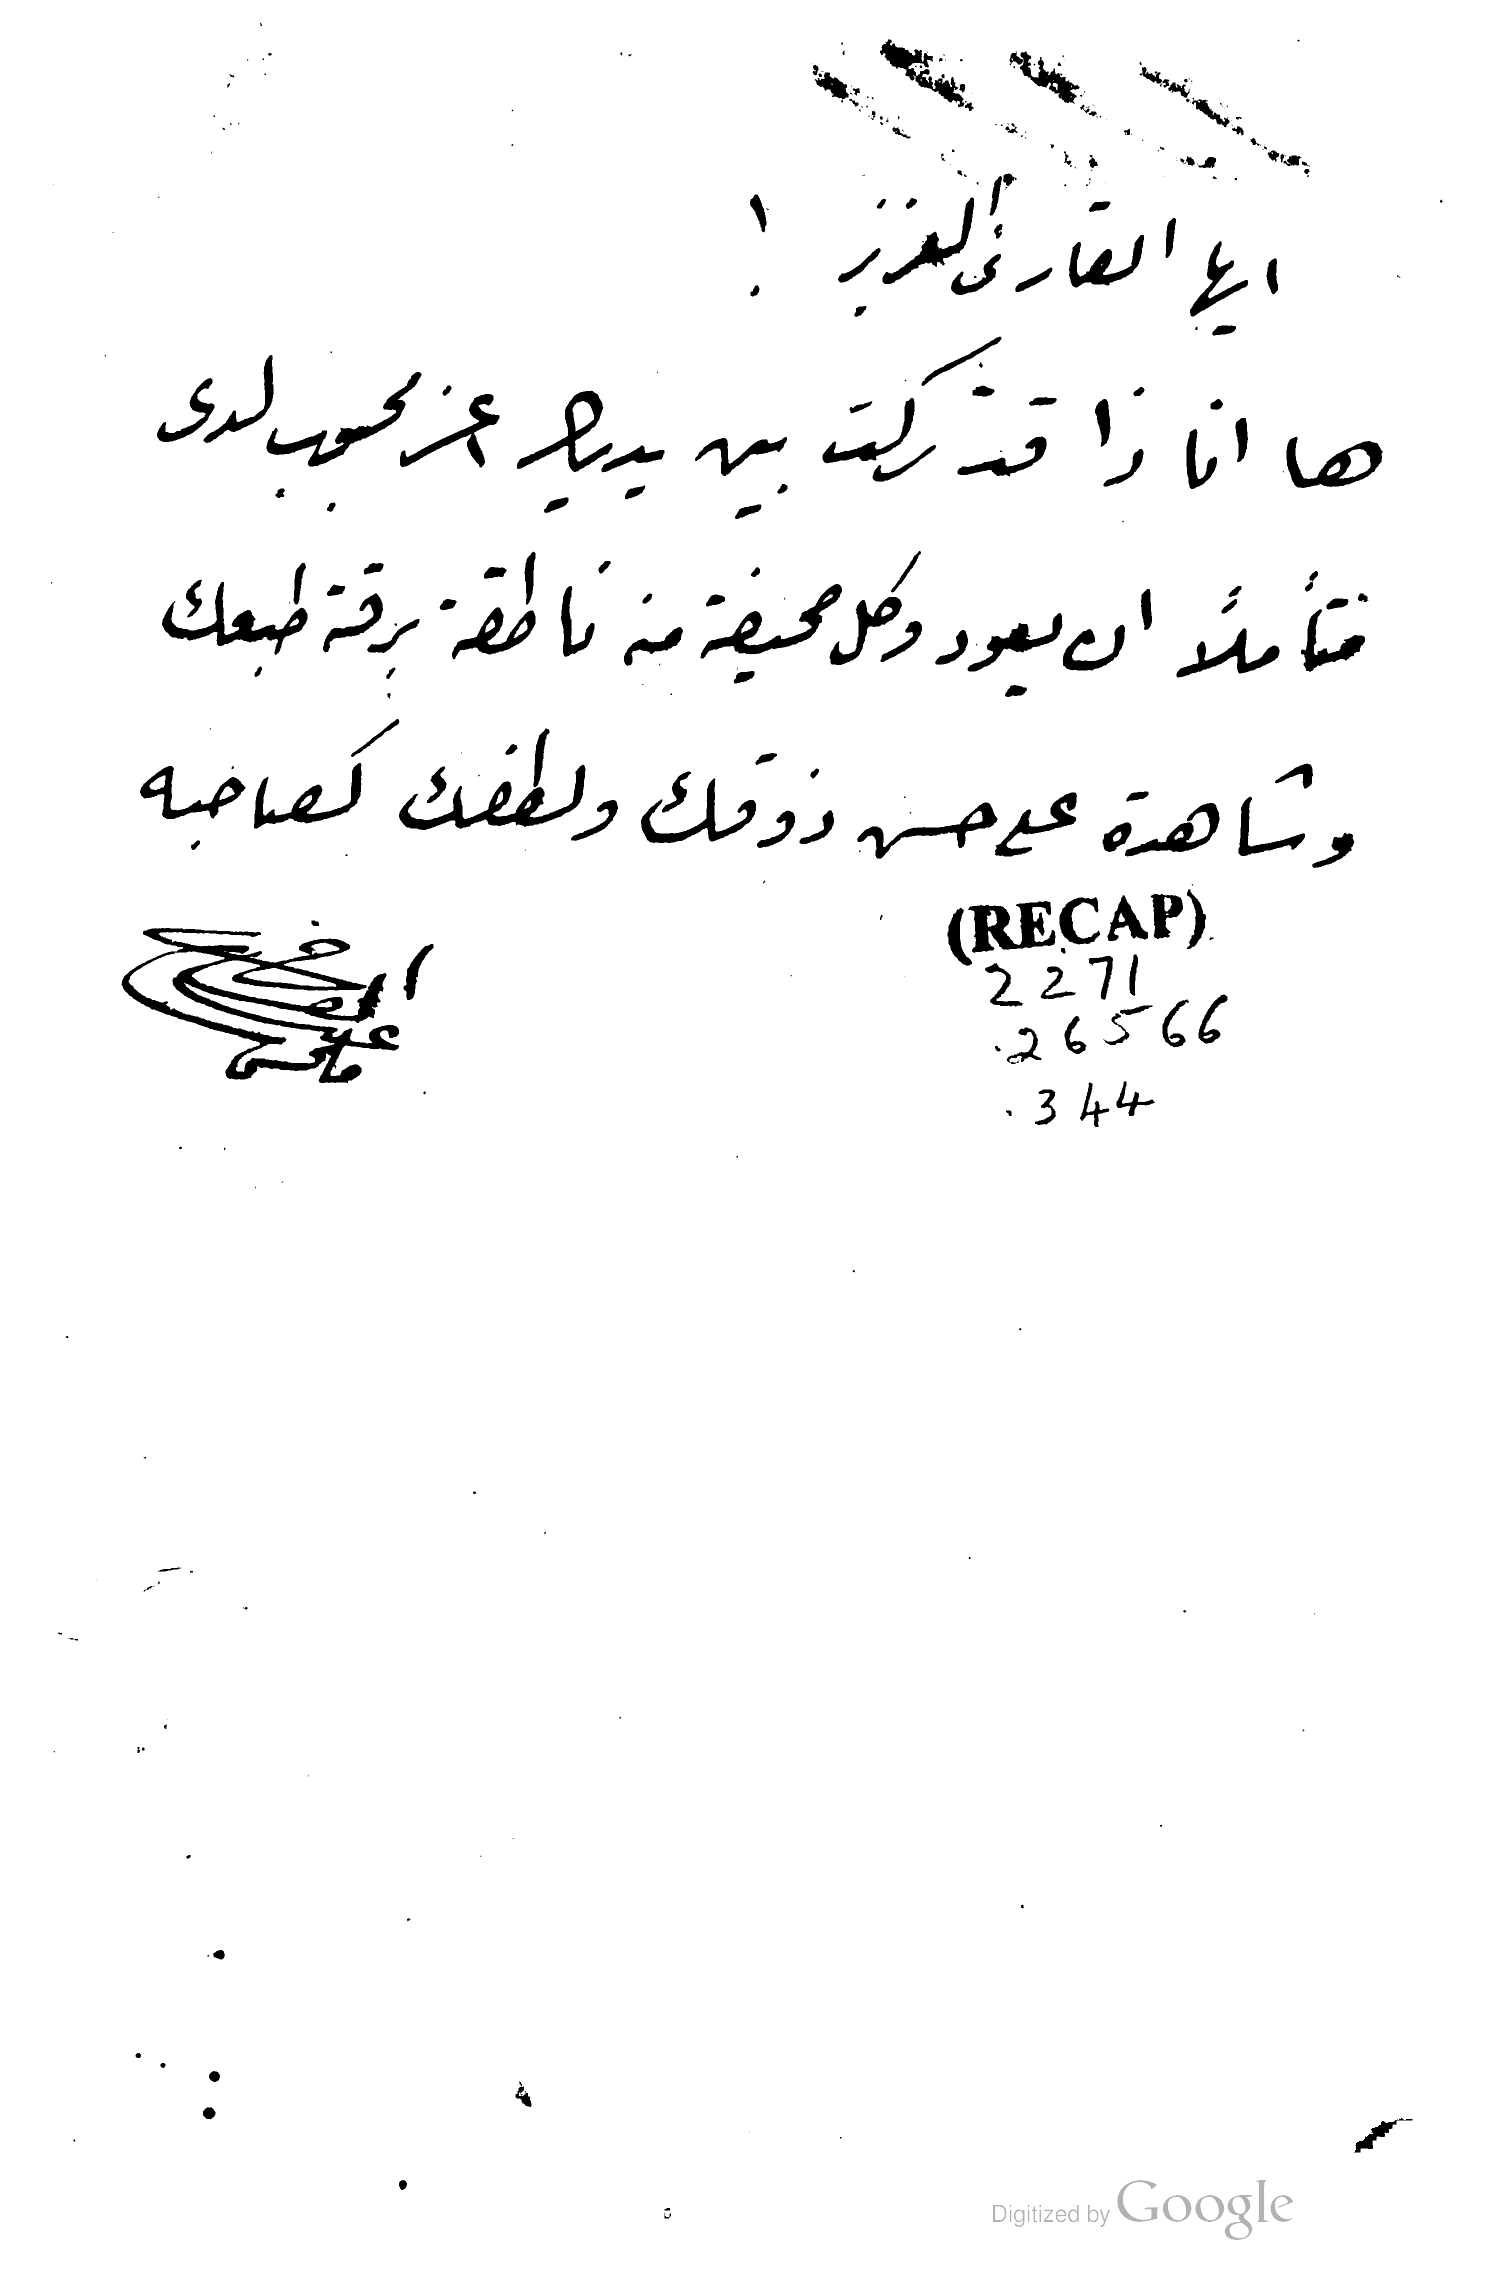 ايها القارئ العزيز !
ها انا ذا قد تركت بين يديك اعز محبوب لدى
متأملاً ان يعود وكل صحيفة منه ناطقة برقة طبعك
وشاهدة على حسن ذوقك ولطفك كصاحبه
(RECAP)
2271
.26566
.344
Digitized by Google